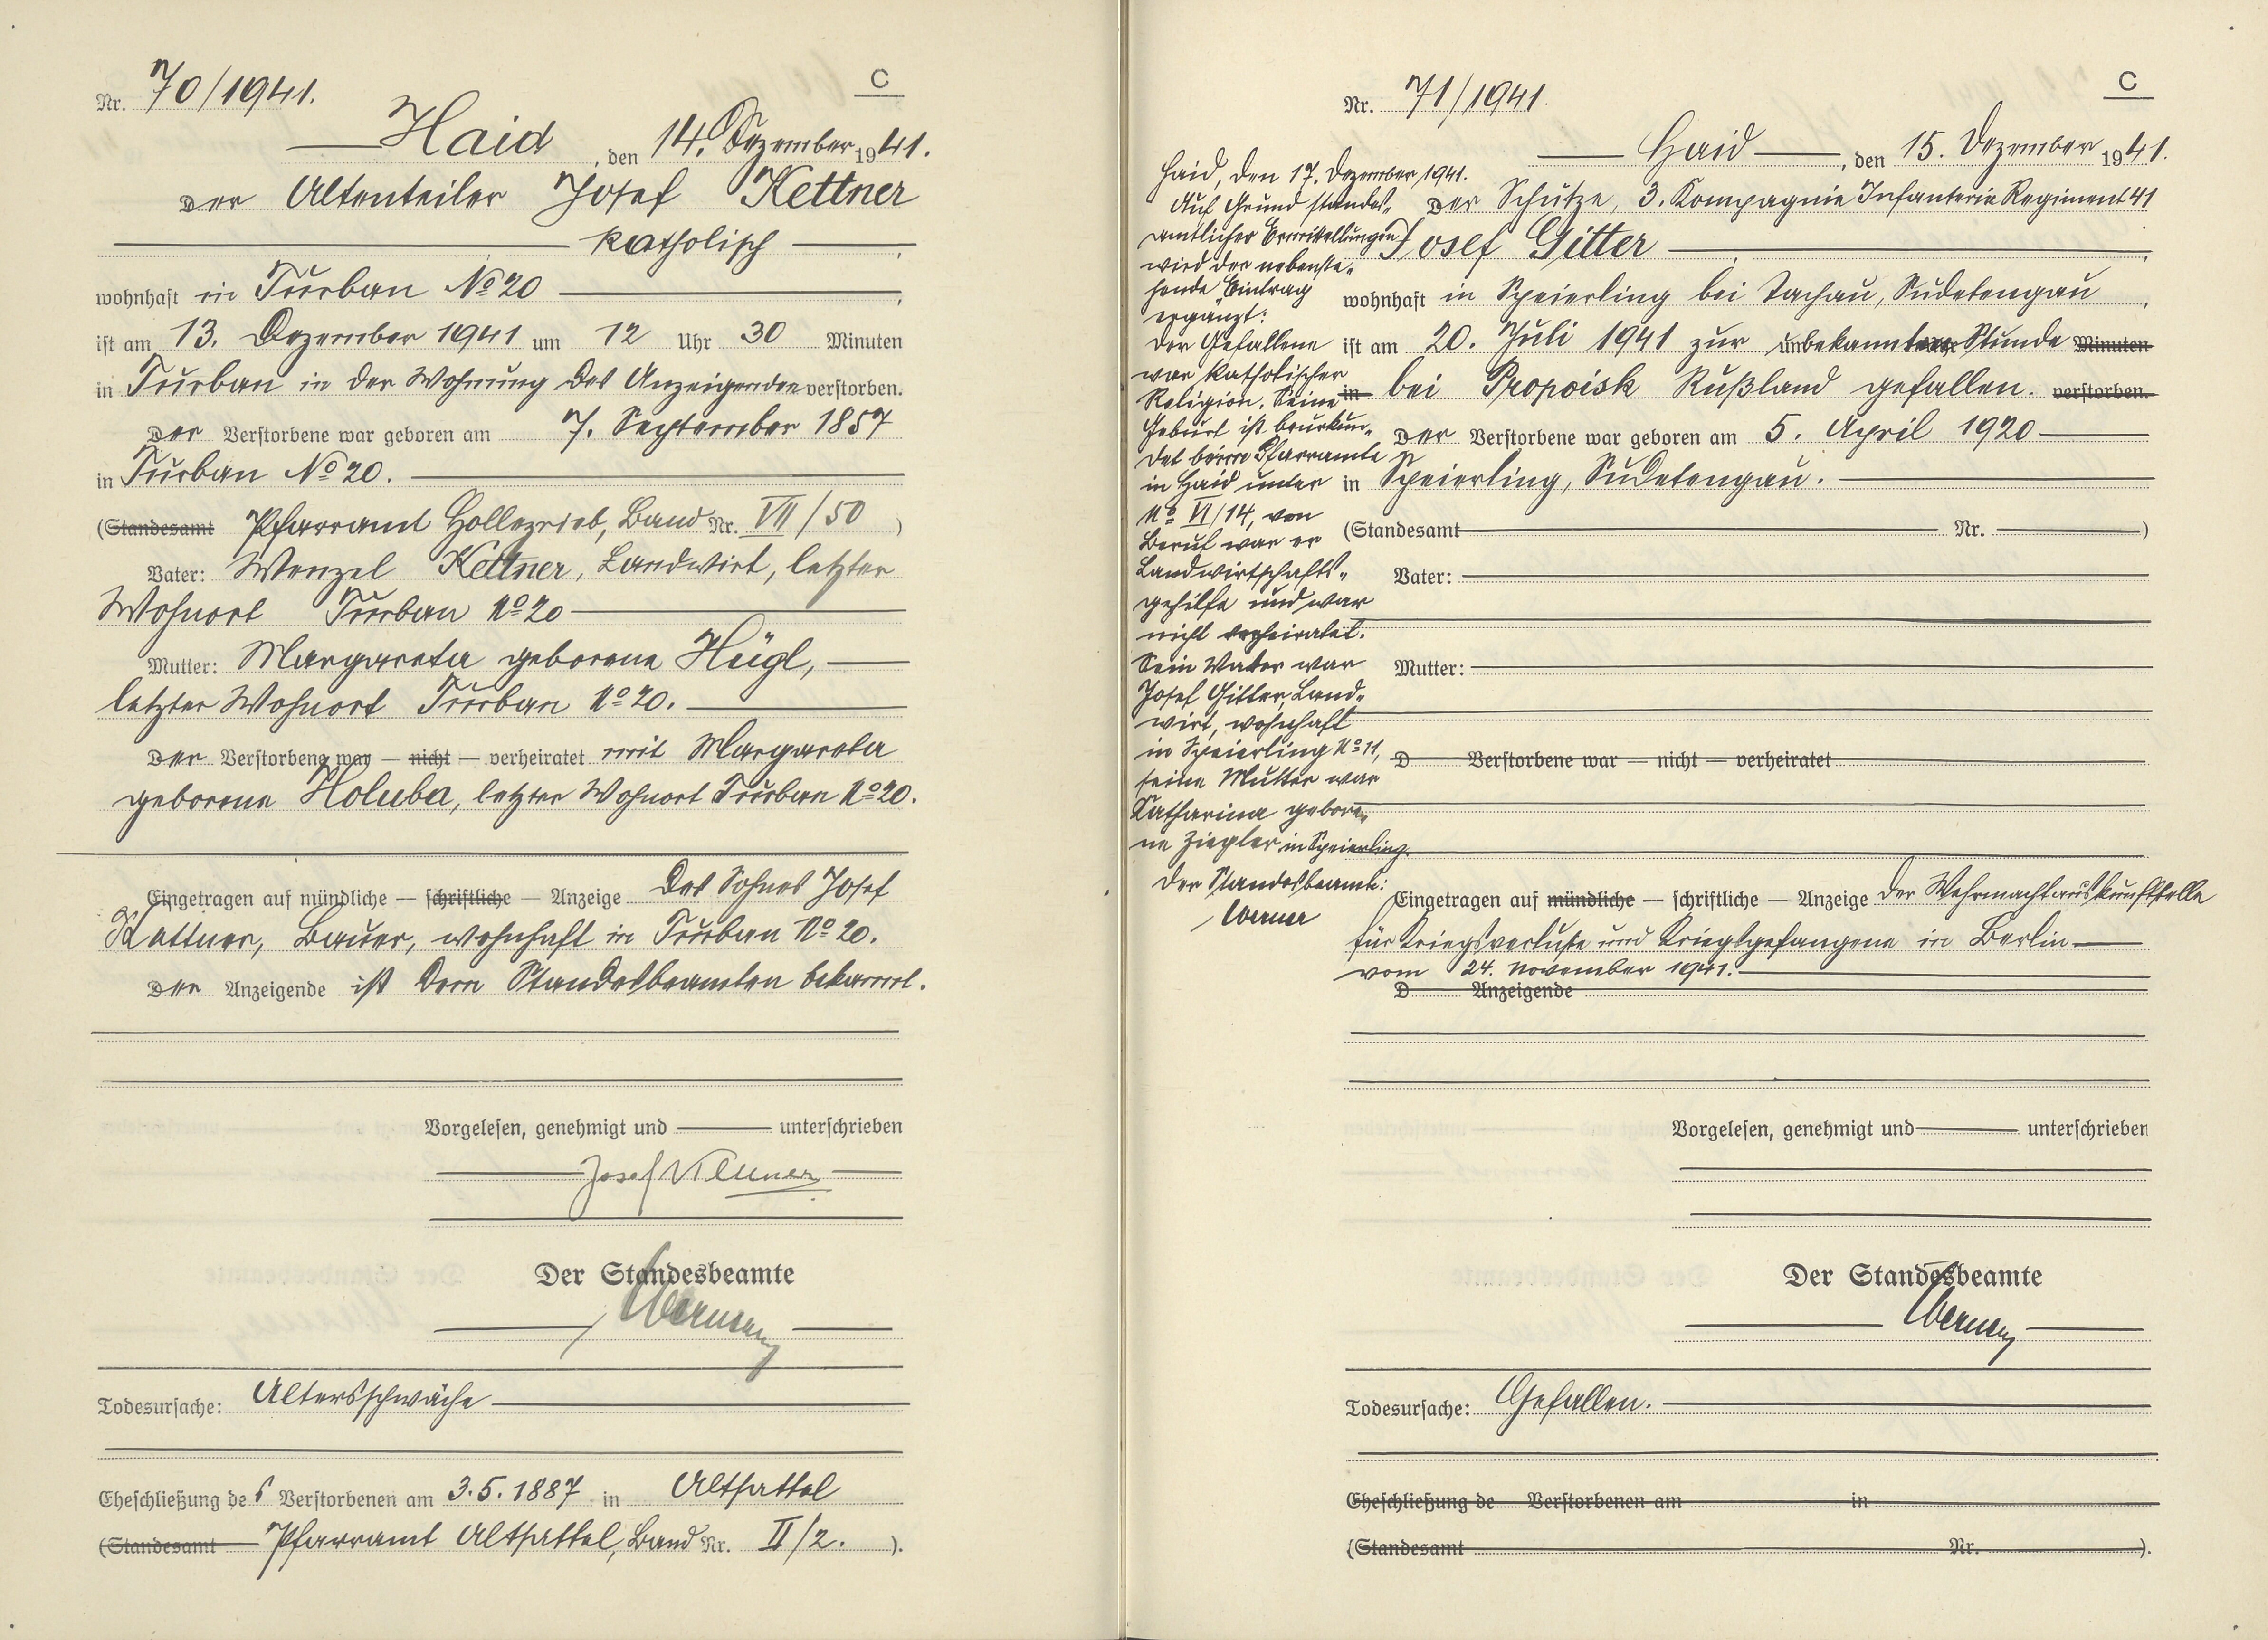 C
Nr. 70/1941.
Haid, den 14. Dezember 1941.
Der Altenteiler Josef Kettner
katholisch,
wohnhaft in Turban No 20,
ist am 13. Dezember 1941 um 12 Uhr 30 Minuten
in Turban in der Wohnung des Anzeigenden verstorben.
Der Verstorbene war geboren am 7. September 1857
in Turban No 20.
(Standesamt Pfarramt Hollezrieb, Band Nr. VII/50)
Vater: Wenzel Kettner, Landwirt, letzter
Wohnort Turban No 20
Mutter: Margareta geborene Hügl,
letzter Wohnort Turban No 20.
Der Verstorbene war — nicht — verheiratet mit Margareta
geborene Holuba, letzter Wohnort Turban No 20.
Eingetragen auf mündliche — schriftliche — Anzeige des Sohnes Josef
Kettner, Bauer, wohnhaft in Turban No 20.
Der Anzeigende ist dem Standesbeamten bekannt.
Vorgelesen, genehmigt und unterschrieben
Josef Kettner
Der Standesbeamte
Werner
Todesursache: Altersschwäche
Eheschließung des Verstorbenen am 3.5.1887 in Altsattel
(Standesamt Pfarramt Altsattel, Band Nr. II/2.).
C
Nr. 71/1941.
Haid, den 15. Dezember 1941.
Der Schütze, 3. Kompagnie Infanterie Regiment 41
Josef Gitter,
wohnhaft in Speierling bei Tachau, Sudetengau,
ist am 20. Juli 1941 zur unbekannten Stunde Minuten
in bei Propoisk Rußland gefallen. verstorben.
Der Verstorbene war geboren am 5. April 1920
in Speierling, Sudetengau.
(Standesamt Nr. )
Vater:
Mutter:
D Verstorbene war — nicht — verheiratet
Eingetragen auf mündliche — schriftliche — Anzeige der Wehrmachtauskunftstelle
für Kriegsverluste und Kriegsgefangene in Berlin
vom 24. November 1941.
D Anzeigende
Vorgelesen, genehmigt und unterschrieben
Der Standesbeamte
Werner
Todesursache: Gefallen.
Eheschließung de Verstorbenen am in
(Standesamt Nr. ).
Haid, den 17. Dezember 1941.
Auf Grund standes-
amtlicher Ermittellungen
wird der nebenste-
hende Eintrag
ergänzt:
Der Gefallene
war katholischer
Religion. Seine
Geburt ist beurkun-
det beim Pfarramte
in Haid unter
No VI/14, von
Beruf war er
Landwirtschafts-
gehilfe und war
nicht verheiratet.
Sein Vater war
Josef Gitter, Land-
wirt, wohnhaft
in Speierling No 11,
seine Mutter war
Katharina gebore-
ne Ziegler in Speierling.
Der Standesbeamte:
Werner